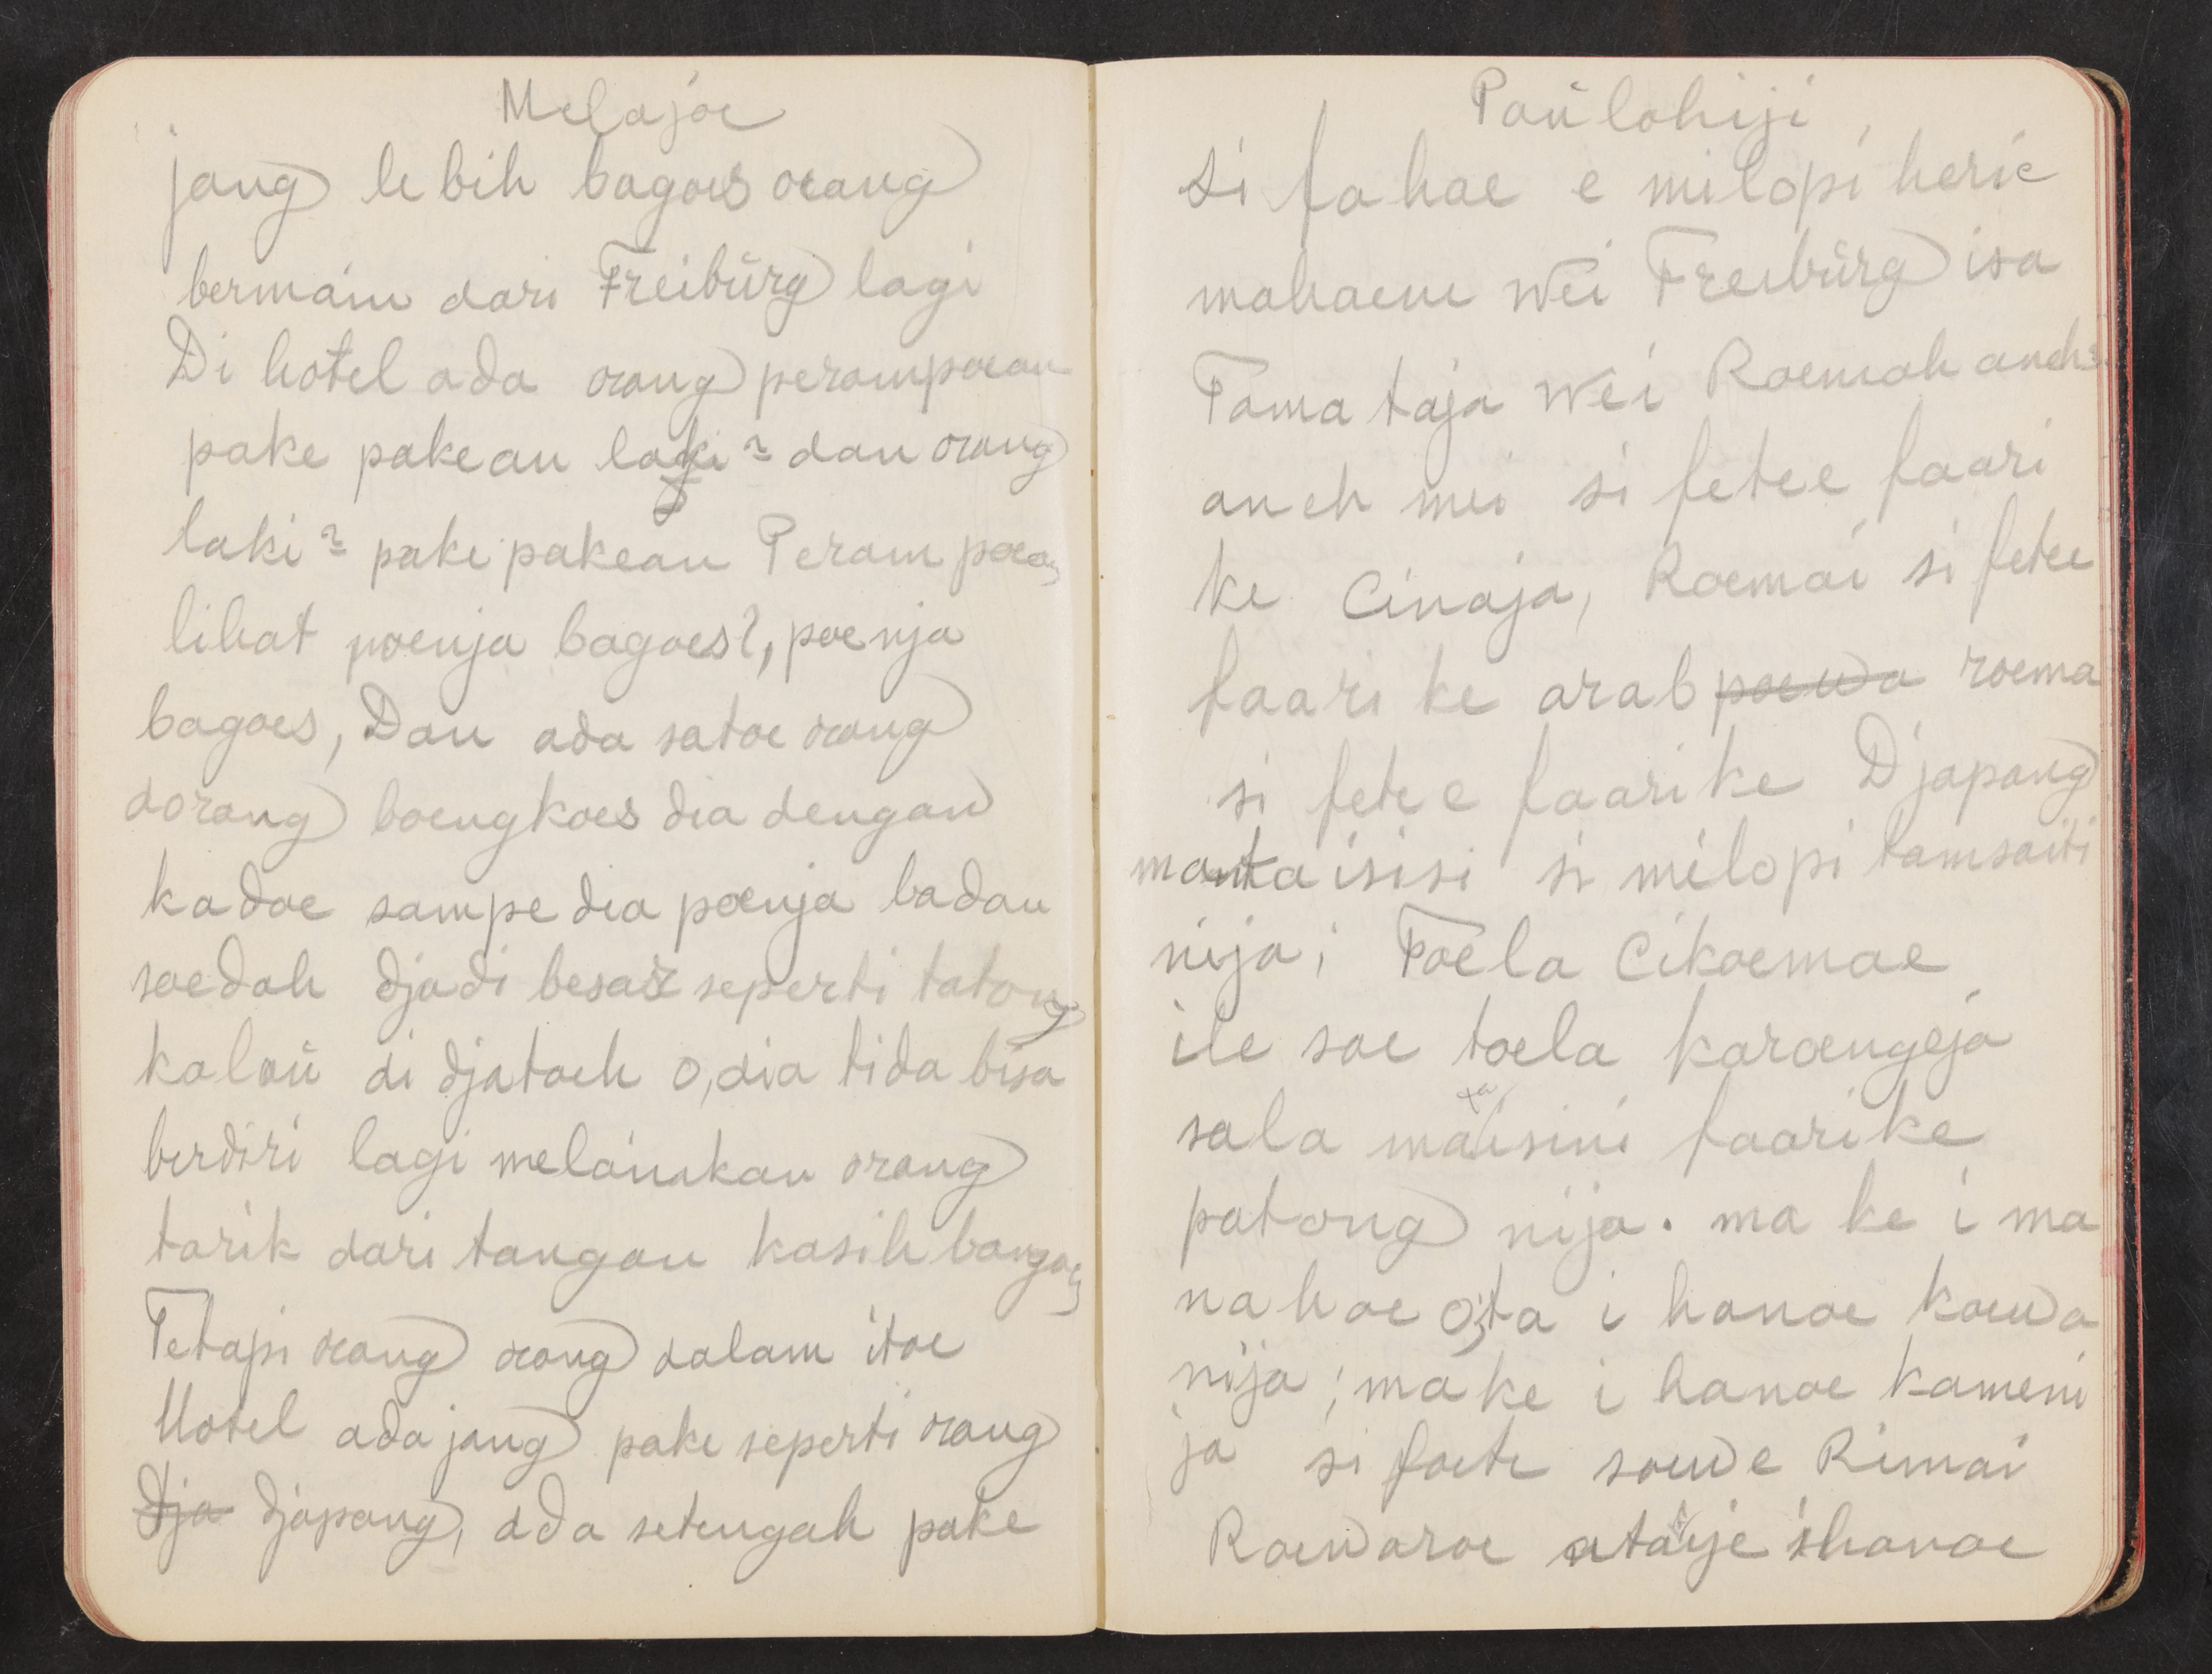 Melajoe
jang lebih bagoes orang
bermáin dari Freibŭrg lagi
Di hotel ada orang perampoean
pake pakean laki² dan orang
laki² pake pakean Perampoean
lihat poenja bagoes², poenja
bagoes, Dan ada satoe orang
dorang boengkoes dia dengan
kadoe sampe dia poenja badan
soedah djadi besar seperti tatong
kaloŭ di djatoeh o, dia tida bisa
berdiri lagi meláinkan orang
tarik dari tangan kasih bangoen
Tetapi orang orang dalam itoe
Hotel ada jang pake seperti orang
Dja Djapang, ada setengah pake
Paŭlohiji
si fahae e milopi herie
mahaem Wei Freibŭrg isa
Tama taja Wei Roemah aneh
aneh mei si fetee faari
ke Cinaja, Roemai si fetee
faari ke arab poewa roema
si fetee faari ke Djapang
manta isisi si milopi tamsaiti
nija; Toela Cikoemae
ile soe toela karoengeja
sala maisini faarike
patong nija. ma ke i ma
nahoe o,ta i hanoe koewa
nija; make i hanoe kameni
ja si foete soewe Rimai
Roewaroe ataije ihanoe